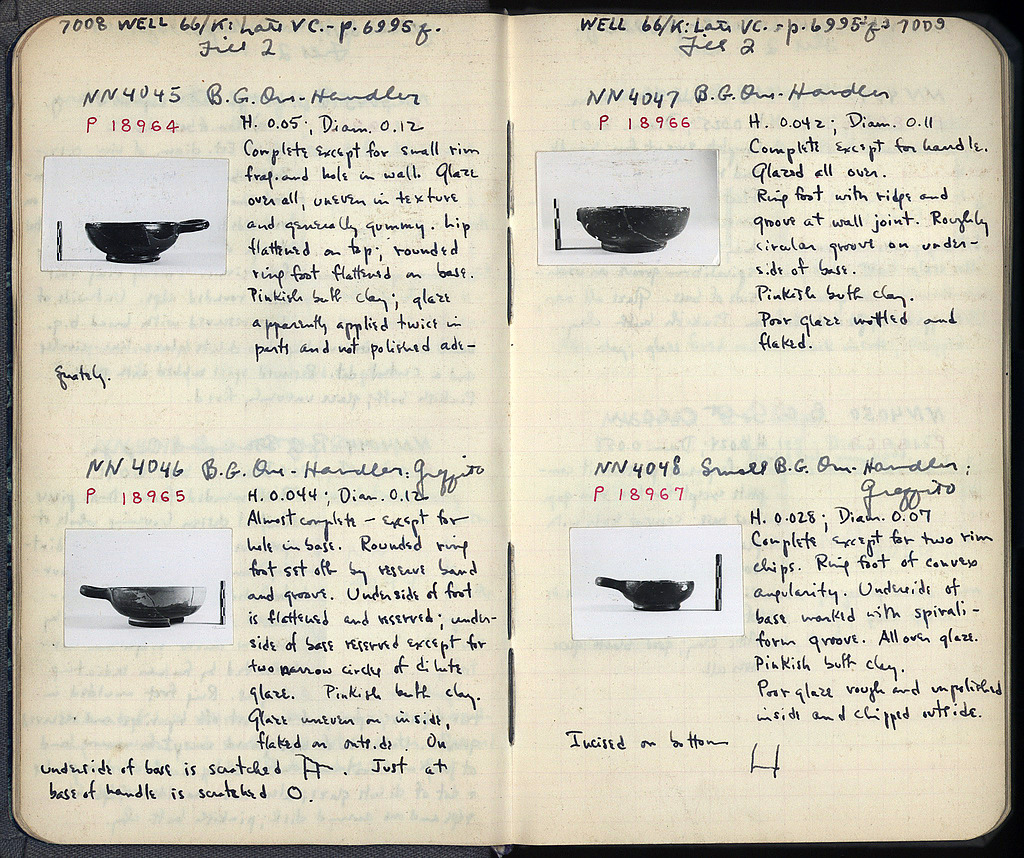 7008 WELL 66/K: Late V C. - p. 6995 f.
Fill 2
NN 4045 B.G. One-Handler
P 18964
H. 0.05; Diam. 0.12
Complete except for small rim
frag. and hole in wall. Glaze
over all, uneven in texture
and generally gummy. Lip
flattened on top; rounded
ring foot flattened on base.
Pinkish buff clay; glaze
apparently applied twice in
parts and not polished ade-
quately.
NN 4046 B.G. One-Handler. Graffito
P 18965
H. 0.044; Diam. 0.12
Almost complete – except for
hole in base. Rounded ring
foot set off by reserve band
and groove. Underside of foot
is flattened and reserved; under-
side of base reserved except for
two narrow circles of dilute
glaze. Pinkish buff clay.
Glaze uneven on inside,
flaked on outside. On
underside of base is scratched A. Just at
base of handle is scratched O.
WELL 66/K: Late V C. - p. 6995 f. 7009
Fill 2
NN 4047 B.G. One-Handler
P 18966
H. 0.042; Diam. 0.11
Complete except for handle.
Glazed all over.
Ring foot with ridge and
groove at wall joint. Roughly
circular groove on under-
side of base.
Pinkish buff clay.
Poor glaze mottled and
flaked.
NN 4048 Small B.G. One-Handler;
Graffito
P 18967
H. 0.028; Diam. 0.07
Complete except for two rim
chips. Ring foot of convex
angularity. Underside of
base worked with spirali-
form groove. All over glaze.
Pinkish buff clay.
Poor glaze rough and unpolished
inside and chipped outside.
Incised on bottom